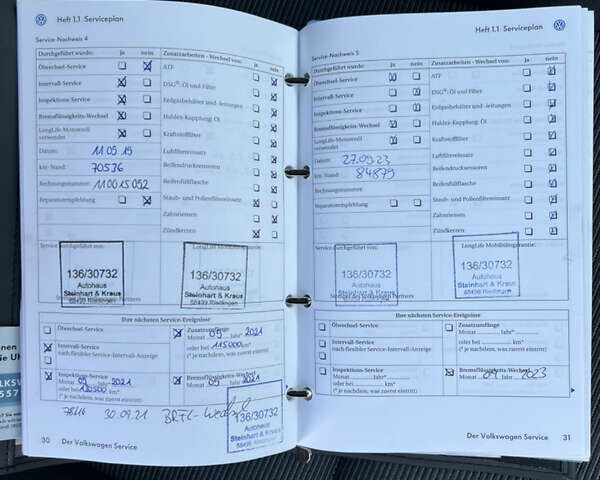 Heft 1.1 Serviceplan
Service-Nachweis 4
Durchgeführt wurde: ja nein Zusatzarbeiten - Wechsel von: ja nein
Ölwechsel-Service ATF
Intervall-Service DSG®-Öl und Filter
Inspektions-Service Erdgasbehälter und -leitungen
Bremsflüssigkeits-Wechsel Haldex-Kupplung: Öl
LongLife-Motorenöl verwendet Kraftstofffilter
Datum: 11.09.19 Luftfiltereinsatz
km-Stand: 70536 Reifendrucksensoren
Rechnungsnummer: 110015092 Reifenfüllflasche
Reparaturempfehlung Staub- und Pollenfiltereinsatz
Zahnriemen
Zündkerzen
Service durchgeführt von: LongLife Mobilitätsgarantie:
136/30732 136/30732
Autohaus Autohaus
Steinhart & Kraus Steinhart & Kraus
Ihre nächsten Service-Ereignisse
Ölwechsel-Service Zusatzumfänge
Monat 09 Jahr* 2021
Intervall-Service oder bei 115000 km*
nach flexibler Service-Intervall-Anzeige (* je nachdem, was zuerst eintritt)
Inspektions-Service Bremsflüssigkeits-Wechsel
Monat 09 Jahr* 2021 Monat 09 Jahr 2021
oder bei km*
(* je nachdem, was zuerst eintritt)
30.09.21
136/30732
Autohaus
Steinhart & Kraus
30 Der Volkswagen Service
Heft 1.1 Serviceplan
Service-Nachweis 5
Durchgeführt wurde: ja nein Zusatzarbeiten - Wechsel von: ja nein
Ölwechsel-Service ATF
Intervall-Service DSG®-Öl und Filter
Inspektions-Service Erdgasbehälter und -leitungen
Bremsflüssigkeits-Wechsel Haldex-Kupplung: Öl
LongLife-Motorenöl verwendet Kraftstofffilter
Datum: 27.09.23 Luftfiltereinsatz
km-Stand: 84879 Reifendrucksensoren
Rechnungsnummer: Reifenfüllflasche
Reparaturempfehlung Staub- und Pollenfiltereinsatz
Zahnriemen
Zündkerzen
Service durchgeführt von: LongLife Mobilitätsgarantie:
136/30732 136/30732
Autohaus Autohaus
Steinhart & Kraus Steinhart & Kraus
Ihre nächsten Service-Ereignisse
Ölwechsel-Service Zusatzumfänge
Monat Jahr*
Intervall-Service oder bei km*
nach flexibler Service-Intervall-Anzeige (* je nachdem, was zuerst eintritt)
Inspektions-Service Bremsflüssigkeits-Wechsel
Monat Jahr* Monat 09 Jahr 2023
oder bei km*
(* je nachdem, was zuerst eintritt)
Der Volkswagen Service 31